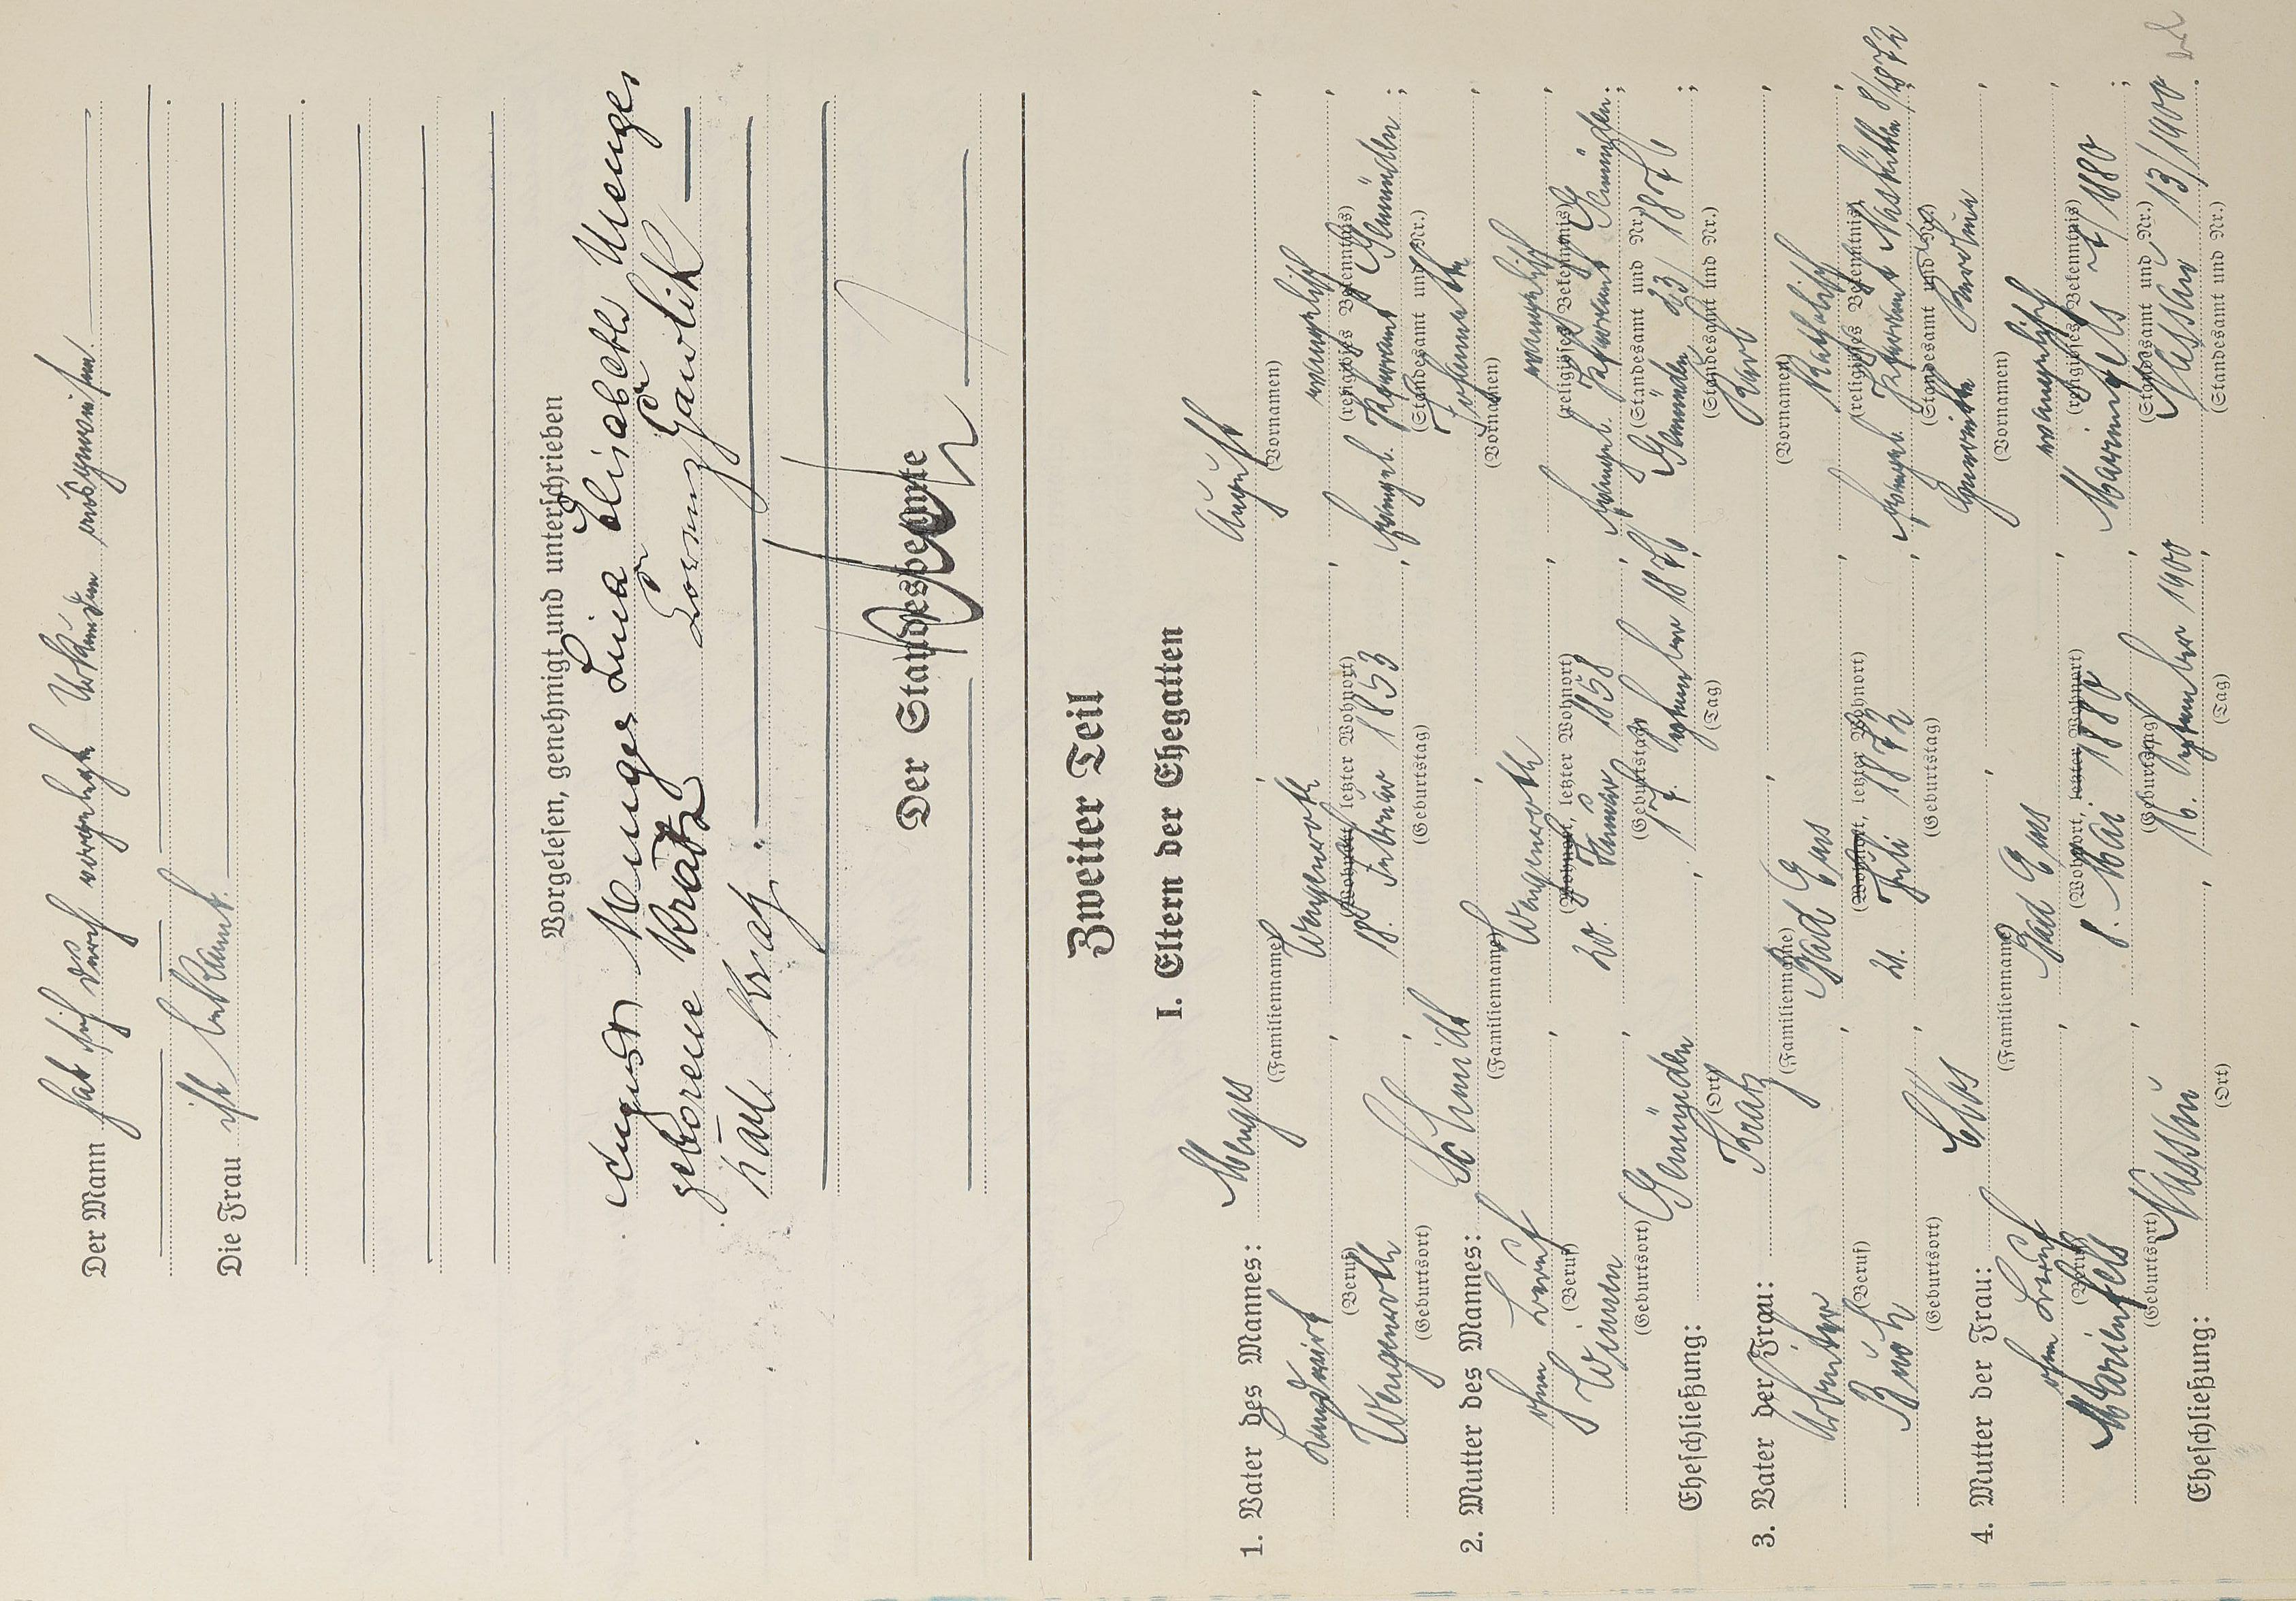 Der Mann hat sich durch vorgelegte Urkunden ausgewiesen.
Die Frau ist bekannt.
Vorgelesen, genehmigt und unterschrieben
August Menges Lina Elisabeth Menges
geborene Kratz Lorenz Gawlik
Karl Kratz.
Der Standesbeamte
Zweiter Teil
I. Eltern der Ehegatten
1. Vater des Mannes: Menges August,
(Familienname) (Vornamen)
Landwirt, Wengenroth, evangelisch,
(Beruf) (Wohnort, letzter Wohnort) (religiöses Bekenntnis)
Wengenroth, 18. Februar 1853, Evangl. Pfarramt Gemünden;
(Geburtsort) (Geburtstag) (Standesamt und Nr.)
2. Mutter des Mannes: Schmidt, Johannette,
(Familienname) (Vornamen)
ohne Beruf, Wengenroth, evangelisch,
(Beruf) (Wohnort, letzter Wohnort) (religiöses Bekenntnis)
Winnen, 20 Januar 1858, Evangel. Pfarramt Gemünden;
(Geburtsort) (Geburtstag) (Standesamt und Nr.)
Eheschließung: Gemünden, 17. 1876, Gemünden 23/1876;
(Ort) (Tag) (Standesamt und Nr.)
3. Vater der Frau: Kratz, Karl,
(Familienname) (Vornamen)
Arbeiter, Bad Ems, Katholisch,
(Beruf) (Wohnort, letzter Wohnort) (religiöses Bekenntnis)
21. Juli 1872, Evangel. Pfarramt 8/1872
(Geburtsort) (Geburtstag) (Standesamt und Nr.)
4. Mutter der Frau: , ,
(Familienname) (Vornamen)
ohne Beruf, Bad Ems, evangelisch,
(Beruf) (Wohnort, letzter Wohnort) (religiöses Bekenntnis)
Marienfels, 8. Mai 1880, Marienfels 7/1880;
(Geburtsort) (Geburtstag) (Standesamt und Nr.)
Eheschließung: Nassau, 16. September 1900, Nassau 13/1900.
(Ort) (Tag) (Standesamt und Nr.)